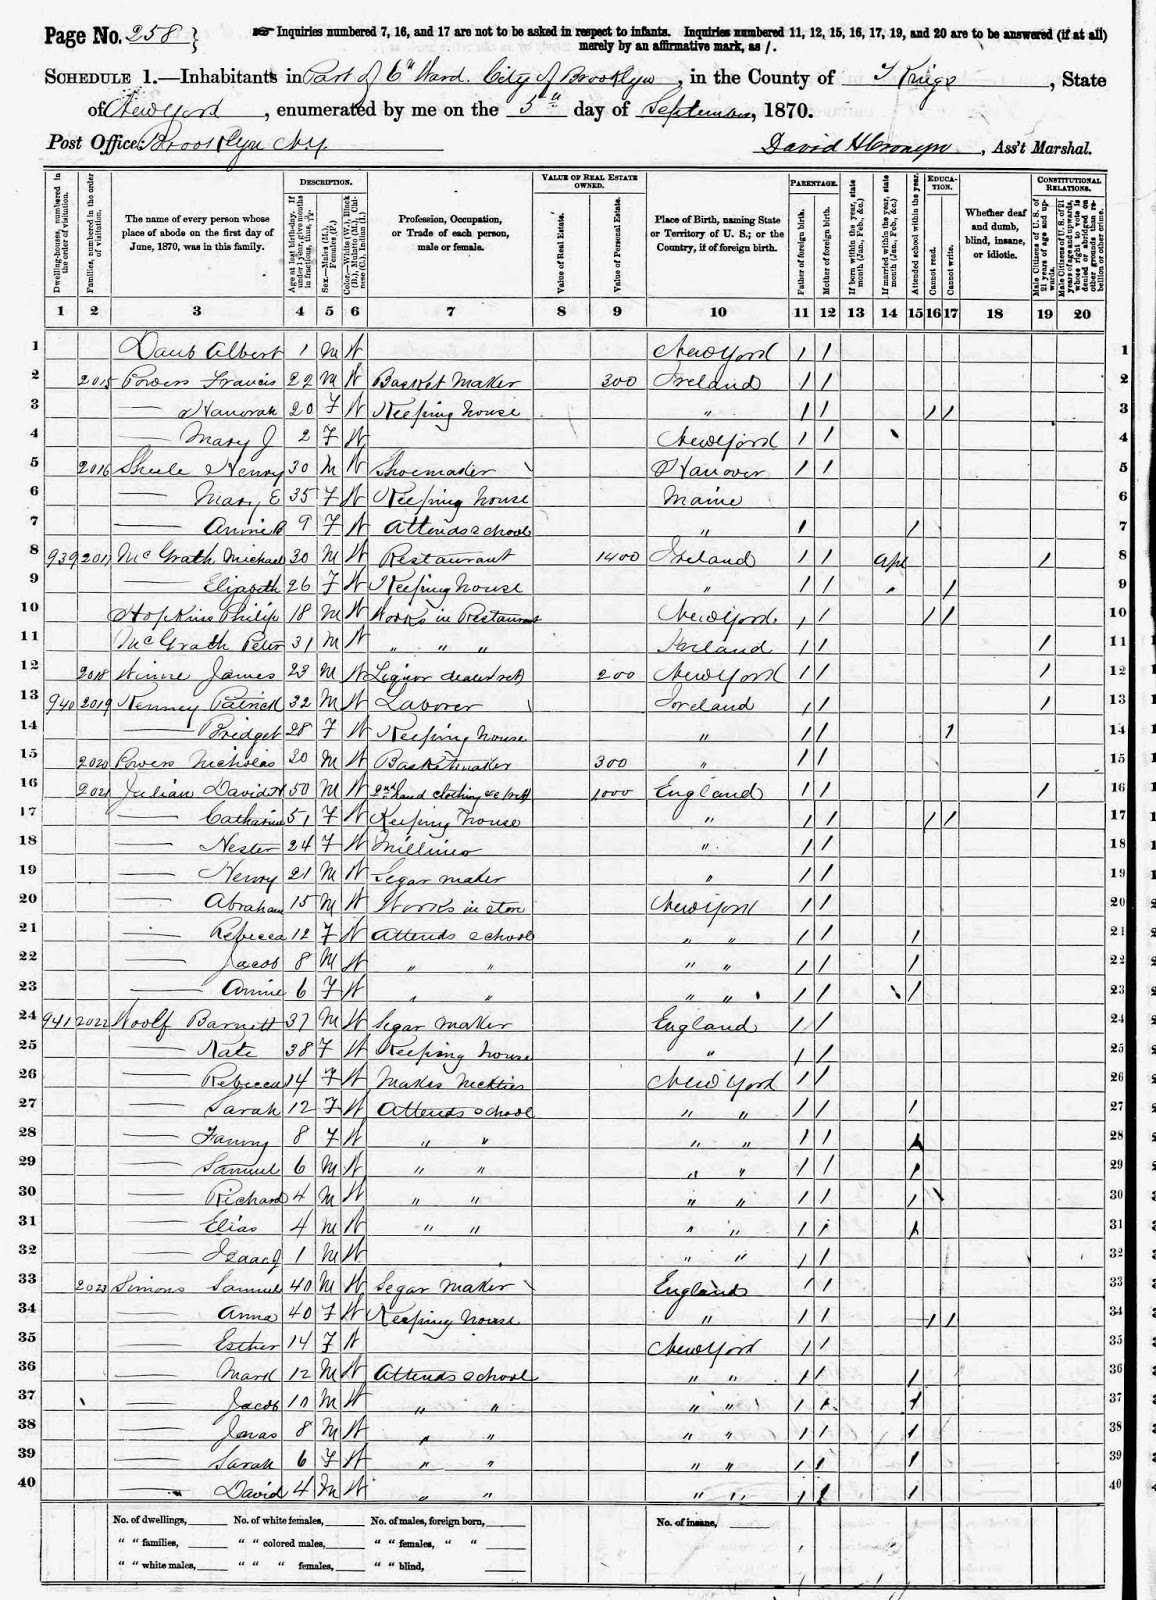 Page No. 258
☞ Inquiries numbered 7, 16, and 17 are not to be asked in respect to infants. Inquiries numbered 11, 12, 15, 16, 17, 19, and 20 are to be answered (if at all)
merely by an affirmative mark, as /.
SCHEDULE 1.—Inhabitants in Part of 6" Ward. City of Brooklyn, in the County of Kings, State
of New York, enumerated by me on the 5th day of September, 1870.
Post Office: Brooklyn N.Y. David H Cronyn, Ass't Marshal.
DESCRIPTION. VALUE OF REAL ESTATE OWNED. PARENTAGE. EDUCATION. CONSTITUTIONAL RELATIONS.
Dwelling-houses, numbered in the order of visitation.
Families, numbered in the order of visitation.
The name of every person whose place of abode on the first day of June, 1870, was in this family.
Age at last birth-day. If under 1 year, give months in fractions, thus, 3/12.
Sex.—Males (M.), Females (F.).
Color.—White (W.), Black (B.), Mulatto (M.), Chinese (C.), Indian (I.)
Profession, Occupation, or Trade of each person, male or female.
Value of Real Estate.
Value of Personal Estate.
Place of Birth, naming State or Territory of U. S.; or the Country, if of foreign birth.
Father of foreign birth.
Mother of foreign birth.
If born within the year, state month (Jan., Feb., &c.)
If married within the year, state month (Jan., Feb., &c.)
Attended school within the year.
Cannot read.
Cannot write.
Whether deaf and dumb, blind, insane, or idiotic.
Male Citizens of U. S. of 21 years of age and upwards.
Male Citizens of U. S. of 21 years of age and upwards, whose right to vote is denied or abridged on other grounds than rebellion or other crime.
1 2 3 4 5 6 7 8 9 10 11 12 13 14 15 16 17 18 19 20
1 Daub Albert 1 M W New York / / 1
2 2015 Powers Francis 22 M W Basket Maker 300 Ireland / / 2
3 — Hanorah 20 F W Keeping house " / / / / 3
4 — Mary J 2 F W New York / / 4
5 2016 Henry 30 M W Shoemaker Hanover / / 5
6 — Mary E 35 F W Keeping house Maine 6
7 — Annie B 9 F W Attends school " / / 7
8 939 2017 McGrath Michael 30 M W Restaurant 1400 Ireland / / Apl / 8
9 — Elizabeth 26 F W Keeping house " / / / 9
10 Hopkins Philip 18 M W Works in Restaurant New York / / / / 10
11 McGrath Peter 31 M W " " " Ireland / / / 11
12 2018 James 23 M W Liquor dealer 200 New York / / / 12
13 940 2019 Kenney Patrick 32 M W Laborer Ireland / / / 13
14 — Bridget 28 F W Keeping house " / / / 14
15 2020 Powers Nicholas 30 M W Basketmaker 300 " / / 15
16 2021 Julian David H 50 M W 2nd hand clothing 1000 England / / / 16
17 — Catharine 51 F W Keeping house " / / / / 17
18 — Hester 24 F W Milliner " / / 18
19 — Henry 21 M W Segar maker " / / 19
20 — Abraham 15 M W Works in store New York / / 20
21 — Rebecca 12 F W Attends school " " / / / 21
22 — Jacob 8 M W " " " " / / / 22
23 — Annie 6 F W " " " " / / / 23
24 941 2022 Woolf Barnett 37 M W Segar maker England / / 24
25 — Kate 38 F W Keeping house " / / 25
26 — Rebecca 14 F W Makes Neckties New York / / 26
27 — Sarah 12 F W Attends school " " / / / 27
28 — Fanny 8 F W " " " " / / / 28
29 — Samuel 6 M W " " " " / / / 29
30 — Richard 4 M W " " " " / / / 30
31 — Elias 4 M W " " " " / / / 31
32 — Isaac J 1 M W " " / / 32
33 2023 Simons Samuel 40 M W Segar maker England / / 33
34 — Anna 40 F W Keeping house " / / / / 34
35 — Esther 14 F W New York / / 35
36 — Mark 12 M W Attends school " " / / / 36
37 — Jacob 10 M W " " " " / / / 37
38 — Jonas 8 M W " " " " / / / 38
39 — Sarah 6 F W " " " " / / / 39
40 — David 4 M W " " " " / / / 40
No. of dwellings, ____ No. of white females, ____ No. of males, foreign born, ____ No. of insane, ____
" " families, ____ " " colored males, ____ " " females, " " ____
" " white males, ____ " " " females, ____ " " blind, ____